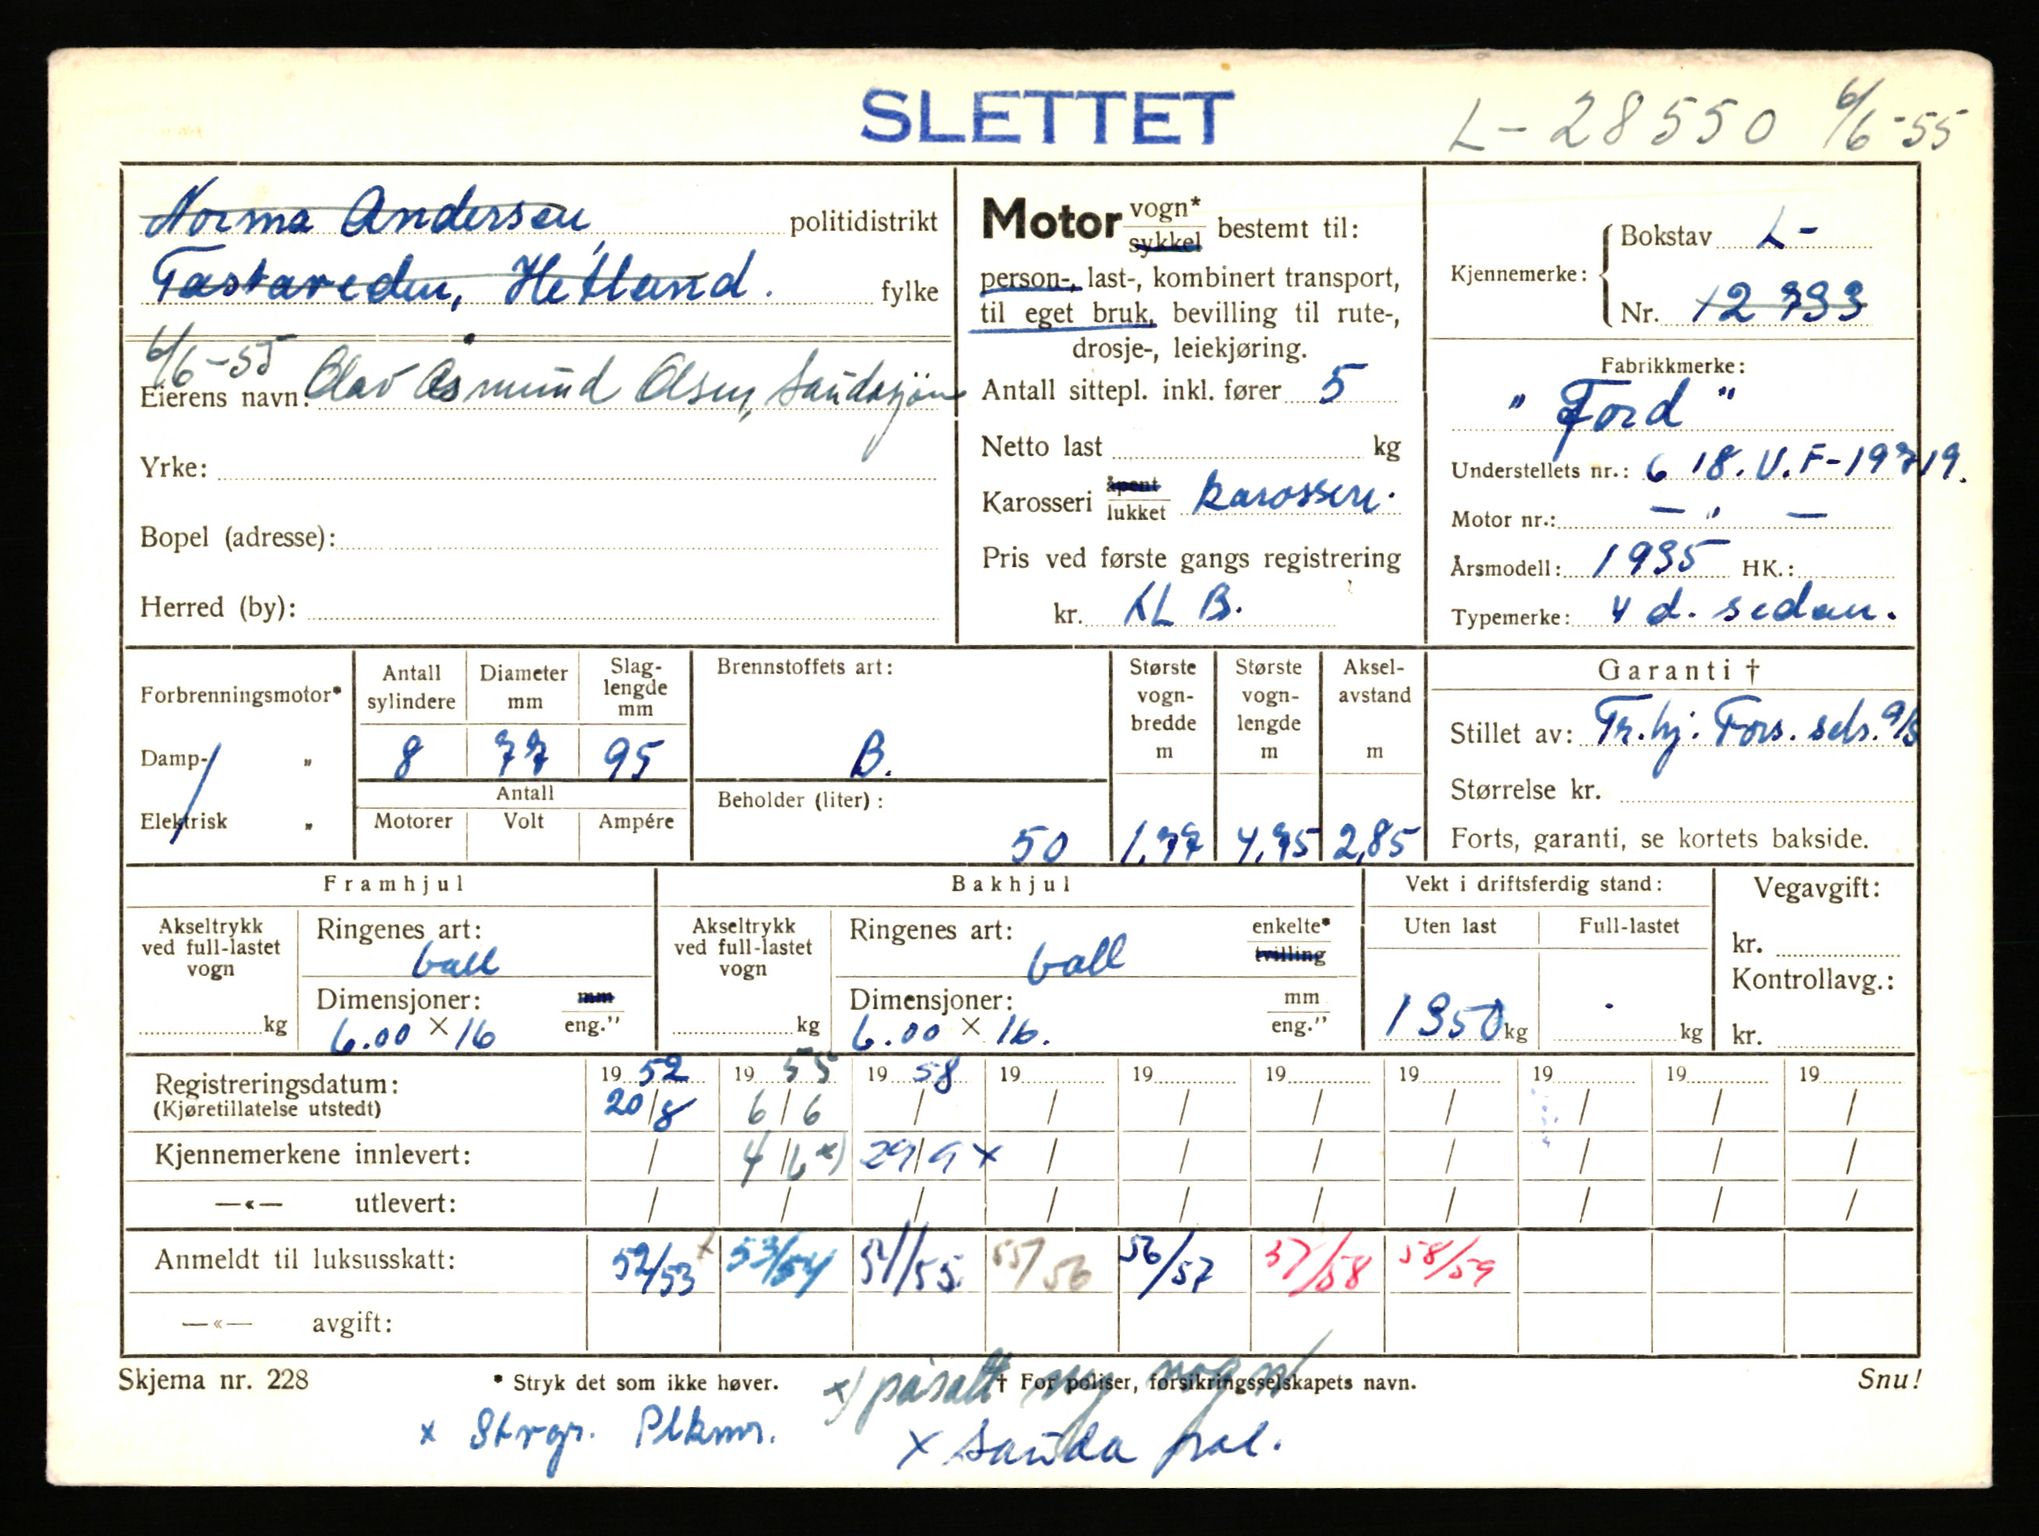 SLETTET
L-28550 6/6-55
Norma Andersen, politidistrikt
Tastaveden, Hetland. fylke
6/6-55
Eierens navn: Olav Asmund Olsen, Saudasjøen
Yrke:
Bopel (adresse):
Herred (by):
Motor vogn* sykkel bestemt til:
person-, last-, kombinert transport,
til eget bruk, bevilling til rute-,
drosje-, leiekjøring.
Antall sittepl. inkl. fører 5
Netto last kg
Karosseri åpent lukket karosseri.
Pris ved første gangs registrering
kr. KL B.
Kjennemerke: Bokstav L-
Nr. 12733
Fabrikkmerke:
"Ford"
Understellets nr.: 6 18.U.F-19719.
Motor nr.: — " —
Årsmodell: 1935 HK.:
Typemerke: 4 d. sedan.
Forbrenningsmotor*
Damp- "
Elektrisk "
Antall sylindere 8
Diameter mm 77
Slaglengde mm 95
Antall
Motorer Volt Ampére
Brennstoffets art:
B.
Beholder (liter):
50
Største vognbredde m 1,77
Største vognlengde m 4,75
Akselavstand m 2,85
Garanti †
Stillet av: Tr.hj. Fors. sels. A/S
Størrelse kr.
Forts, garanti, se kortets bakside.
Framhjul
Akseltrykk ved full-lastet vogn
kg
Ringenes art:
ball
Dimensjoner: mm eng."
6.00 × 16
Bakhjul
Akseltrykk ved full-lastet vogn
kg
Ringenes art: enkelte* tvilling
ball
Dimensjoner: mm eng."
6.00 × 16.
Vekt i driftsferdig stand:
Uten last Full-lastet
1350 kg kg
Vegavgift:
kr.
Kontrollavg.:
kr.
Registreringsdatum: 1952 1955 1958 19 19 19 19 19 19 19
(Kjøretillatelse utstedt) 20/8 6/6 / / / / / / / /
Kjennemerkene innlevert: / 4/6 x) 29/9 x / / / / / / /
—«— utlevert: / / / / / / / / / /
Anmeldt til luksusskatt: 52/53 x 53/54 54/55. 55/56 56/57 57/58 58/59
—«— avgift:
Skjema nr. 228 * Stryk det som ikke høver. † For poliser, forsikringsselskapets navn. Snu!
x) påsatt ny vogn
x Strgr. Plkmr. x Sauda pol.